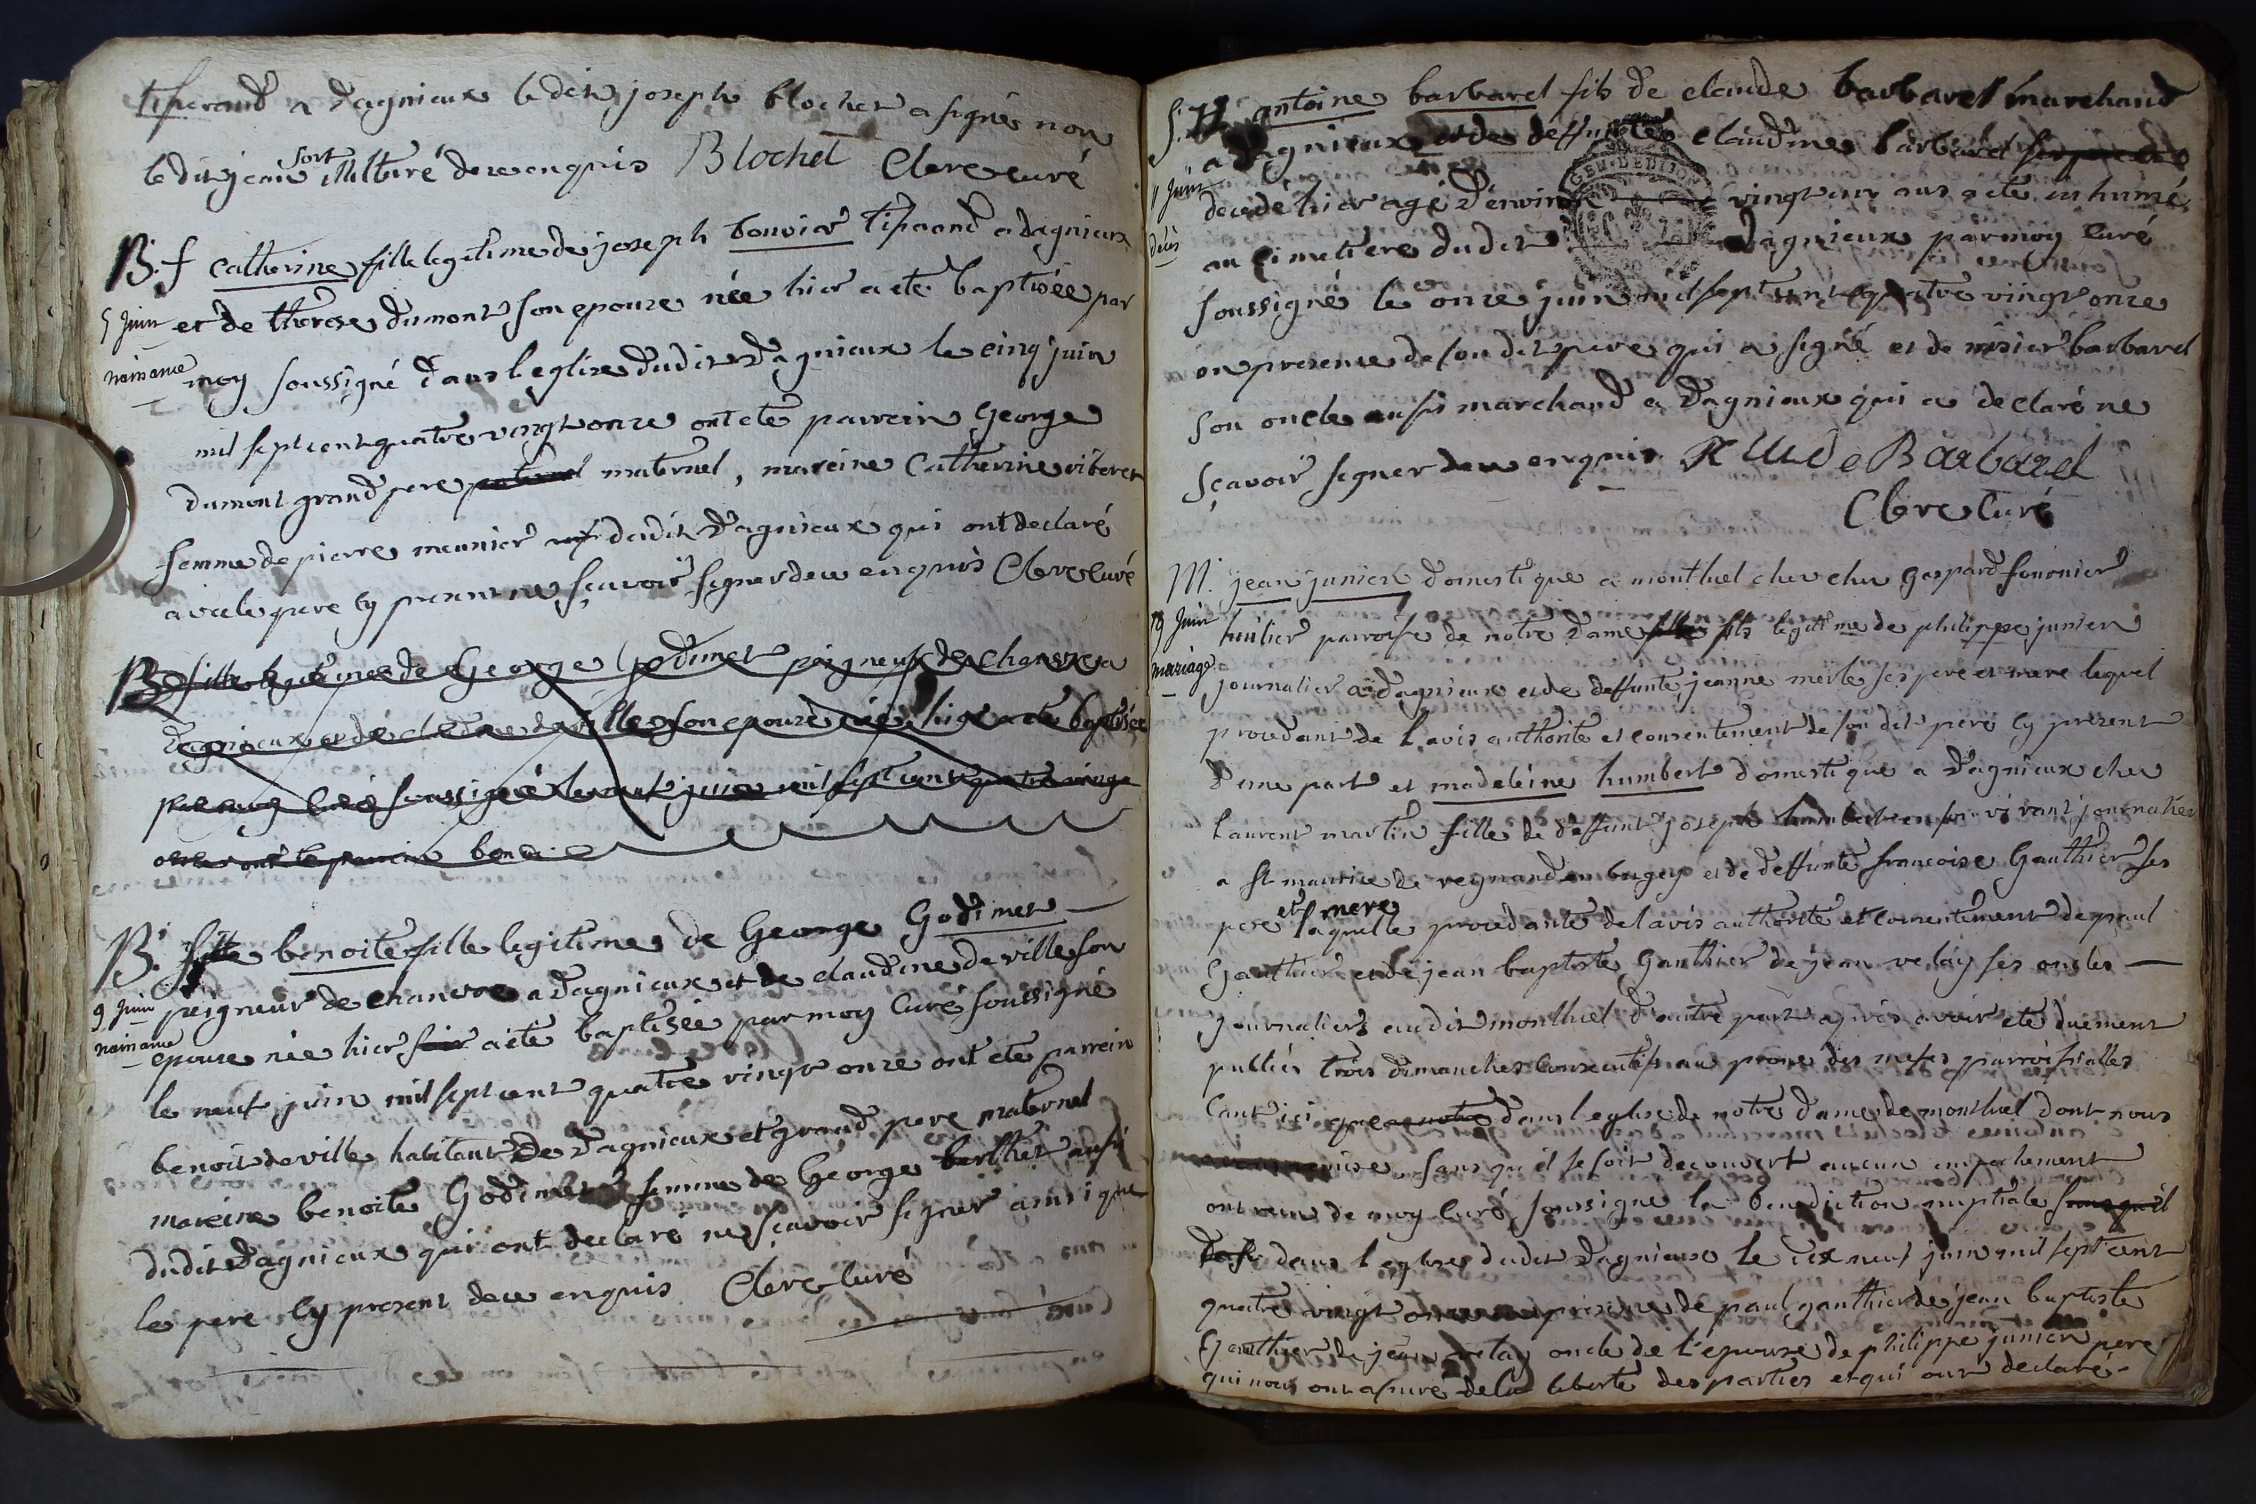 tisserand a dagnieux ledit joseph blochet a signé non
le dit jean sort illituré de ce enquis Blochet Clerc curé
B. f catherine fille legitime de joseph bouvier tisserand a dagnieux
5 juin et de therese dumont son epouze née hier a eté baptisée par
naissance moy soussigné dans l'eglize dudit dagnieux le cinq juin
mil sept cent quatre vingt onze ont eté parrein George
dumont grand pere paternel maternel, mareine Catherine
femme de pierre meunier dudit dagnieux qui ont declaré
avec le pere cy present ne sçavoir signer de ce enquis Clerc curé
B fille legitime de George Godimet peigneur de chanvre a
dagnieux et de claudine deville son epouze née hier a eté baptisée
par moy curé soussigné le neuf juin mil sept cent quatre vingt
onze ont eté parrein benoi
B. fille benoite fille legitime de George Godimet
9 juin peigneur de chanvre a dagnieux et de claudine deville son
naissance epouze née hier soir a eté baptisée par moy curé soussigné
le neuf juin mil sept cent quatre vingt onze ont eté parrein
benoit deville habitant de dagnieux et grand pere maternel
mareine benoite Godimet femme de George berthet aussi
dudit dagnieux qui ont declaré ne sçavoir signer ainsi que
le pere cy present de ce enquis Clerc curé
S. antoine barbaret fils de claude barbaret marchand
a dagnieux et de deffunte claudine barbaret
11 juin decedé hier agé d'environ vingt un ans a eté inhumé
décès au cimetiere dudit dagnieux par moy curé
soussigné le onze juin mil sept cent quatre vingt onze
en presence de son dit pere qui a signé et de barbaret
son oncle aussi marchand a dagnieux qui a declaré ne
sçavoir signer de ce enquis Claude Barbaret
Clerc Curé
M. jean junien domestique a montluel chez Gaspard
19 juin parroisse de notre dame fils legitime de philippe junien
mariage journalier a dagnieux et de deffunte jeanne merle ses pere et mere lequel
procedant de l'avis authorité et consentement de son dit pere cy present
d'une part et madeleine humbert domestique a dagnieux chez
Laurent martin fille de deffunt joseph humbert en son vivant journalier
a st maurice de reynand en bugey et de deffunte francoise Gauthier ses
pere et mere laquelle procedante de l'avis authorité et consentement de paul
Gauthier et de jean baptiste Gauthier de jean velay ses oncles
journaliers audit montluel d'autre part apres avoir eté duement
publiés trois dimanches consecutifs au prone des messes parroissialles
tant ici que dans l'eglize de notre dame de montluel dont nous
sans qu'il se soit decouvert aucun empechement
ont recu de moy curé soussigné la benediction nuptiale sans qu'il
dans l'eglize dudit dagnieux le dix neuf juin mil sept cent
quatre vingt onze en presence de paul gauthier de jean baptiste
Gauthier de jean velay oncle de l'epouze de philippe junien pere
qui nous ont assuré de la liberté des parties et qui ont declaré